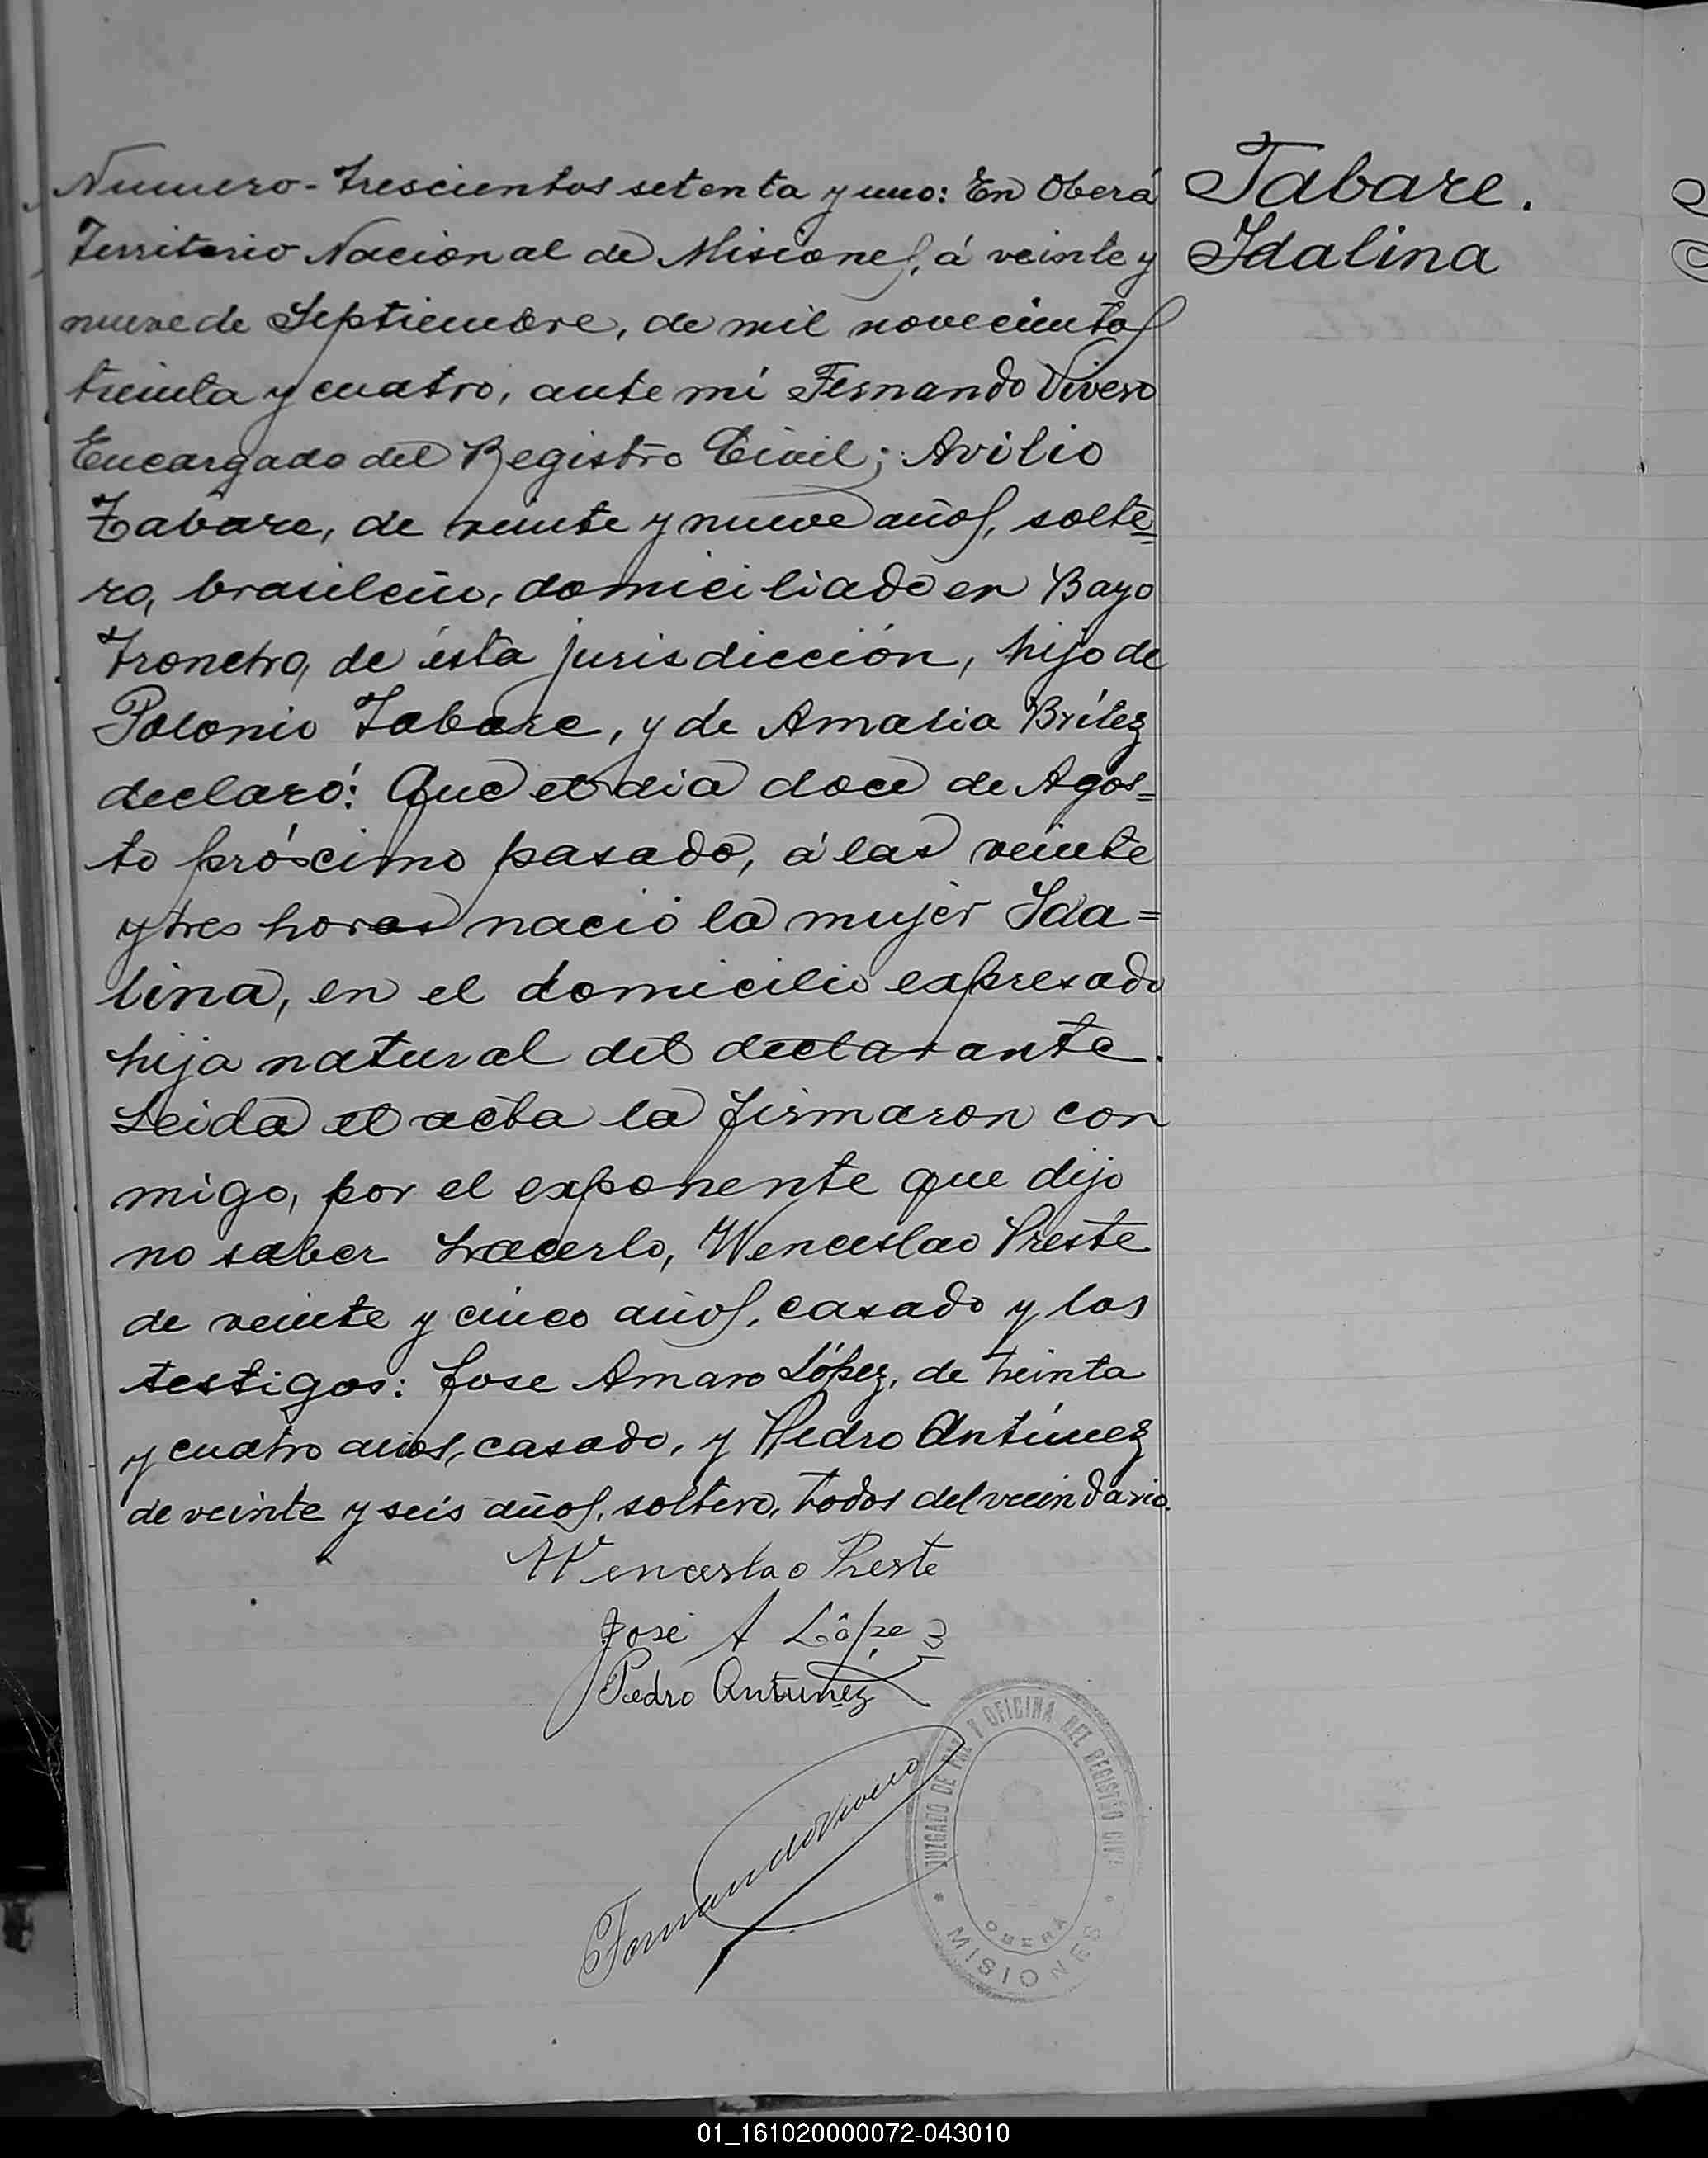 Numero - trescientos setenta y uno: En Oberá
Territorio Nacional de Misiones, á veinte y
nueve de Septiembre, de mil novecientos
treinta y cuatro, ante mí Fernando Vivero
Encargado del Registro Civil; Avilio
Tabare, de veinte y nueve años, solte=
ro, brasileño, domiciliado en Bayo
Troncho, de ésta jurisdicción, hijo de
Polonio Tabare, y de Amalia Brítez
declaró: Que el dia doce de Agos=
to próximo pasado, á las veinte
y tres horas nació la mujer Ida=
lina, en el domicilio expresado
hija natural del declarante.
Leida el acta la firmaron con
migo, por el exponente que dijo
no saber hacerlo, Wenceslao Preste
de veinte y cinco años, casado y los
testigos: Jose Amaro López, de treinta
y cuatro años, casado, y Pedro Antúnez
de veinte y seis años, soltero, todos del vecindario.
Wenceslao Preste
José A López
Pedro Antunez
Fernando Vivero
JUZGADO DE PAZ Y OFICINA DEL REGISTRO CIVIL
OBERÁ
MISIONES
Tabare.
Idalina
01_161020000072-043010